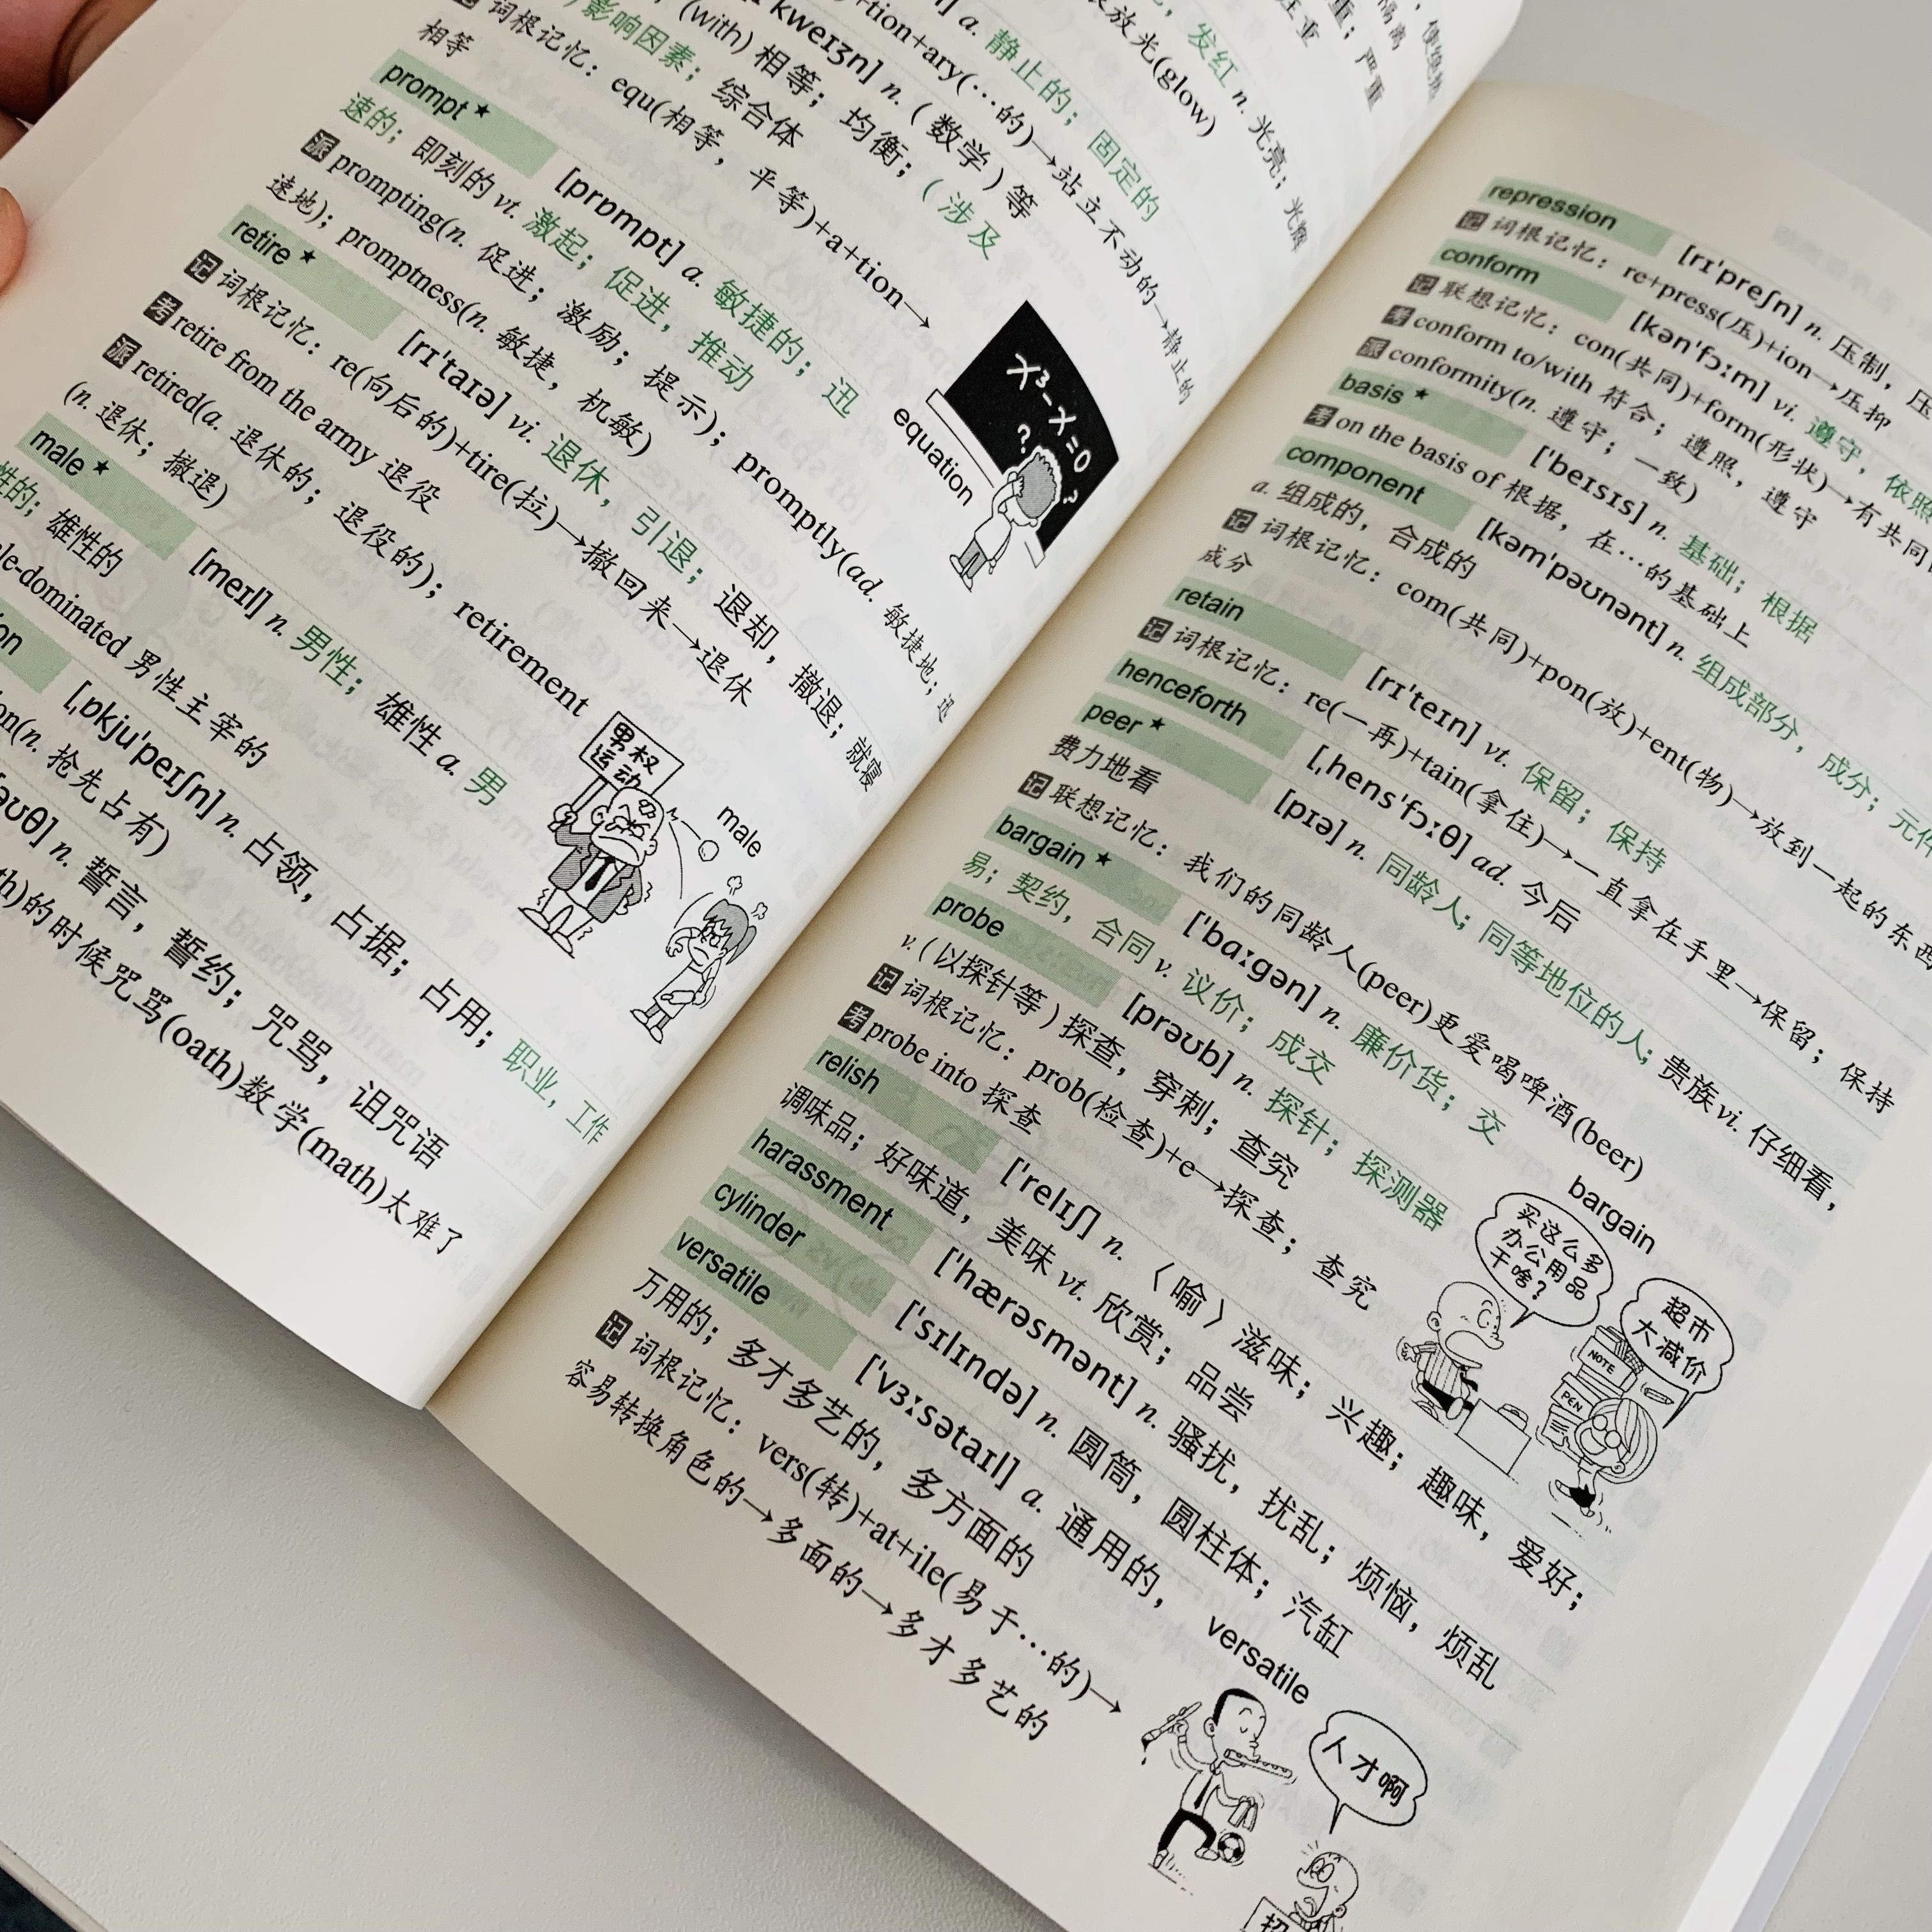 发红 n. 光亮；光辉
放光(glow)
+tion+ary(…的)→站立不动的→静止的
a. 静止的；固定的
kweɪʒn] n.（数学）等
(with) 相等；均衡；（涉及
影响因素；综合体
词根记忆：equ(相等，平等)+a+tion→
相等
equation
X³-X=0
prompt ★ [prɒmpt] a. 敏捷的；迅
速的；即刻的 vt. 激起；促进，推动
派 prompting(n. 促进；激励；提示)；promptly(ad. 敏捷地；迅
速地)；promptness(n. 敏捷，机敏)
retire ★ [rɪˈtaɪə] vi. 退休，引退；退却，撤退；就寝
记 词根记忆：re(向后的)+tire(拉)→撤回来→退休
考 retire from the army 退役
派 retired(a. 退休的；退役的)；retirement
(n. 退休；撤退)
male ★ [meɪl] n. 男性；雄性 a. 男
性的；雄性的
le-dominated 男性主宰的
male
男权
运动
ion [ˌɒkjuˈpeɪʃn] n. 占领，占据；占用；职业，工作
on(n. 抢先占有)
əʊθ] n. 誓言，誓约；咒骂，诅咒语
th)的时候咒骂(oath)数学(math)太难了
repression [rɪˈpreʃn] n. 压制，压
记 词根记忆：re+press(压)+ion→压抑
conform [kənˈfɔːm] vi. 遵守，依照
记 联想记忆：con(共同)+form(形状)→有共同
考 conform to/with 符合；遵照，遵守
派 conformity(n. 遵守；一致)
basis ★ [ˈbeɪsɪs] n. 基础；根据
考 on the basis of 根据，在…的基础上
component [kəmˈpəʊnənt] n. 组成部分，成分；元件
a. 组成的，合成的
记 词根记忆：com(共同)+pon(放)+ent(物)→放到一起的东西
成分
retain [rɪˈteɪn] vt. 保留；保持
记 词根记忆：re(一再)+tain(拿住)→一直拿在手里→保留；保持
henceforth [ˌhensˈfɔːθ] ad. 今后
peer ★ [pɪə] n. 同龄人；同等地位的人；贵族 vi. 仔细看，
费力地看
记 联想记忆：我们的同龄人(peer)更爱喝啤酒(beer)
bargain ★ [ˈbɑːgən] n. 廉价货；交
易；契约，合同 v. 议价；成交
bargain
买这么多
办公用品
干啥？
超市
大减价
NOTE
PEN
probe [prəʊb] n. 探针；探测器
v.（以探针等）探查，穿刺；查究
记 词根记忆：prob(检查)+e→探查；查究
考 probe into 探查
relish [ˈrelɪʃ] n.〈喻〉滋味；兴趣；趣味，爱好；
调味品；好味道，美味 vt. 欣赏；品尝
harassment [ˈhærəsmənt] n. 骚扰，扰乱；烦恼，烦乱
cylinder [ˈsɪlɪndə] n. 圆筒，圆柱体；汽缸
versatile [ˈvɜːsətaɪl] a. 通用的，
万用的；多才多艺的，多方面的
记 词根记忆：vers(转)+at+ile(易于…的)→
容易转换角色的→多面的→多才多艺的
versatile
人才啊